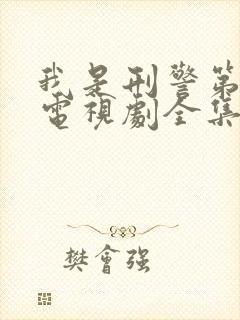 我是刑警第
電視劇全集
樊會强